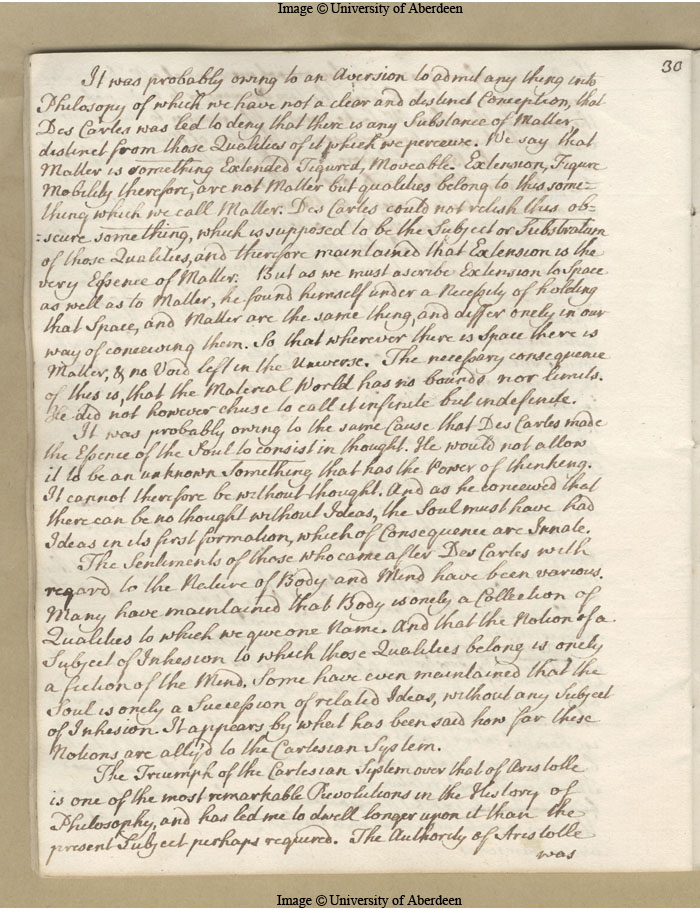 Image © University of Aberdeen
30
It was probably owing to an Aversion to admit any thing into
Philosopy of which we have not a clear and distinct Conception, that
Des Cartes was led to deny that there is any Substance of Matter
distinct from those Qualities of it which we perceive. We say that
Matter is something Extended Figured, Moveable. Extension, Figure
Mobility therefore, are not Matter but qualities belong to this some=
thing which we call Matter. Des Cartes could not relish this ob=
=scure something, which is supposed to be the Subject or Substratum
of those Qualities, and therefore maintained that Extension is the
very Essence of Matter. But as we must ascribe Extension to Space
as well as to Matter, he found himself under a Necessity of holding
that Space, and Matter are the same thing, and differ onely in our
way of conceiving them. So that wherever there is Space there is
Matter, & no Void left in the Universe. The necessery consequence
of this is, that the Material World has no bounds nor limits.
He did not however chuse to call it infinite but indefinite.
It was probably owing to the same Cause that Des Cartes made
the Essence of the Soul to consist in thought. He would not allow
it to be an unknown Something that has the Power of thinking.
It cannot therefore be without thought. And as he conceived that
there can be no thought without Ideas, the Soul must have had
Ideas in its first formation, which of Consequence are Innate.
The Sentiments of those who came after Des Cartes with
regard to the Nature of Body and Mind have been various.
Many have maintained that Body is onely a Collection of
Qualities to which we give one Name. And that the Notion of a
Subject of Inhesion to which those Qualities belong is onely
a fiction of the Mind. Some have even maintained that the
Soul is onely a Succession of related Ideas, without any Subject
of Inhesion. It appears by what has been said how far these
Notions are ally'd to the Cartesian System.
The Triumph of the Cartesian System over that of Aristotle
is one of the most remarkable Revolutions in the History of
Philosophy, and has led me to dwell longer upon it than the
present Subject perhaps required. The Authority of Aristotle
was
Image © University of Aberdeen